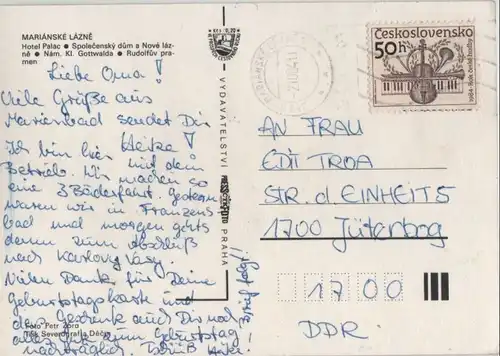 MARIÁNSKÉ LÁZNĚ
Hotel Palac ● Společenský dům a Nové láz-
ně ● Nám. Kl. Gottwalda ● Rudolfův pra-
men
Liebe Oma!
Viele Grüße aus
Marienbad sendet Dir
Heike!
Ich bin hier mit dem
Betrieb. Wir machen so
eine 3 Bäderfahrt. Gestern
waren wir in Franzens
bad und morgen gehts
dann zum Abschluß
nach Karlovy Vary.
Vielen Dank für Deine
Geburtstagskarte und
das Geschenk auch Dir noch
alles Gute zum Geburtstag
nachträglich. Grüß Heike
Brief folgt!
Foto Petr Zora
Tisk Severografia Děčín
VYDAVATELSTVÍ
PRAHA
Československo
50h
1984-Rok české hudby
AN FRAU
EDIT TROA
STR. d. EINHEIT 5
1700 Jüterbog
1700
DDR